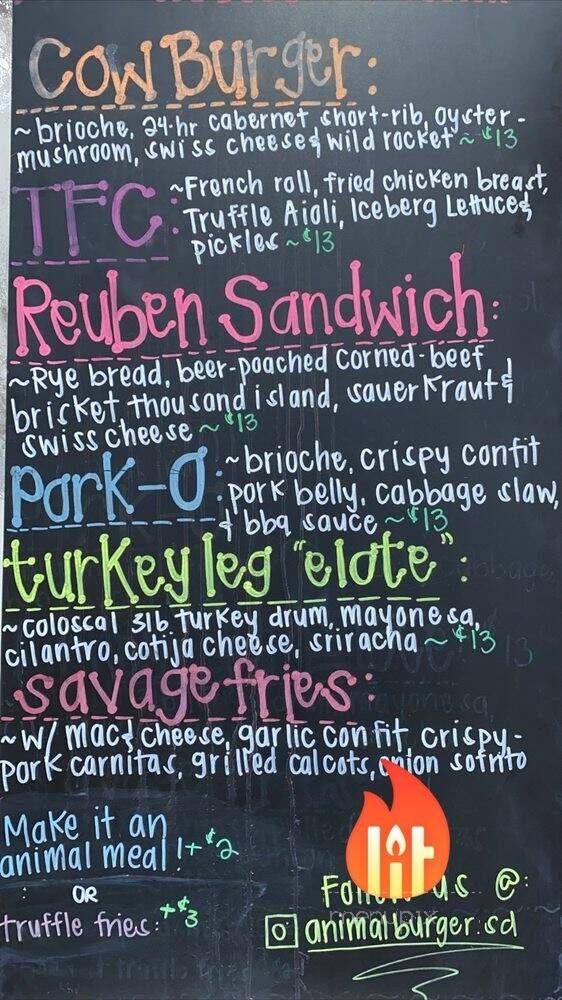 Cow Burger:
~ brioche, 24-hr cabernet short-rib, oyster-
mushroom, swiss cheese & wild rocket ~ $13
TFC:
~French roll, fried chicken breast,
Truffle Aioli, Iceberg Lettuce &
pickles ~ $13
Reuben Sandwich:
~Rye bread, beer-poached corned-beef
bricket, thousand island, sauerkraut &
swiss cheese ~ $13
Pork-O:
~brioche, crispy confit
pork belly, cabbage slaw,
& bbq sauce ~ $13
turkey leg "elote":
~ coloscal 3lb turkey drum, mayonesa,
cilantro, cotija cheese, sriracha ~ $13
savage fries:
~w/ mac & cheese, garlic confit, crispy-
pork carnitas, grilled calcots, onion sofrito
Make it an
animal meal! +$2
OR
truffle fries: +$3
lit
Follow us @:
animalburger.sd